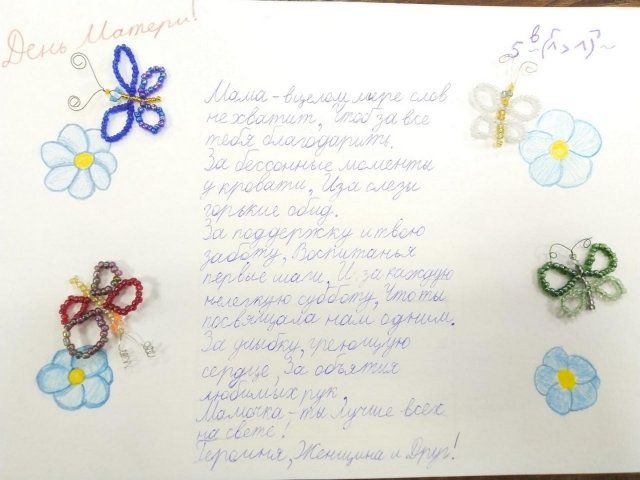 День Матери!
5 в
Мама - в целом мире слов
не хватит, Чтоб за все
тебя благодарить.
За бессонные моменты
у кровати, И за слезы
горькие обид.
За поддержку и твою
заботу, Воспитанья
первые шаги, И за каждую
нелегкую субботу, Что ты
посвящала нам одним.
За улыбку, греющую
сердце, За объятия
любимых рук,
Мамочка - ты лучше всех
на свете!
Героиня, Женщина и Друг!